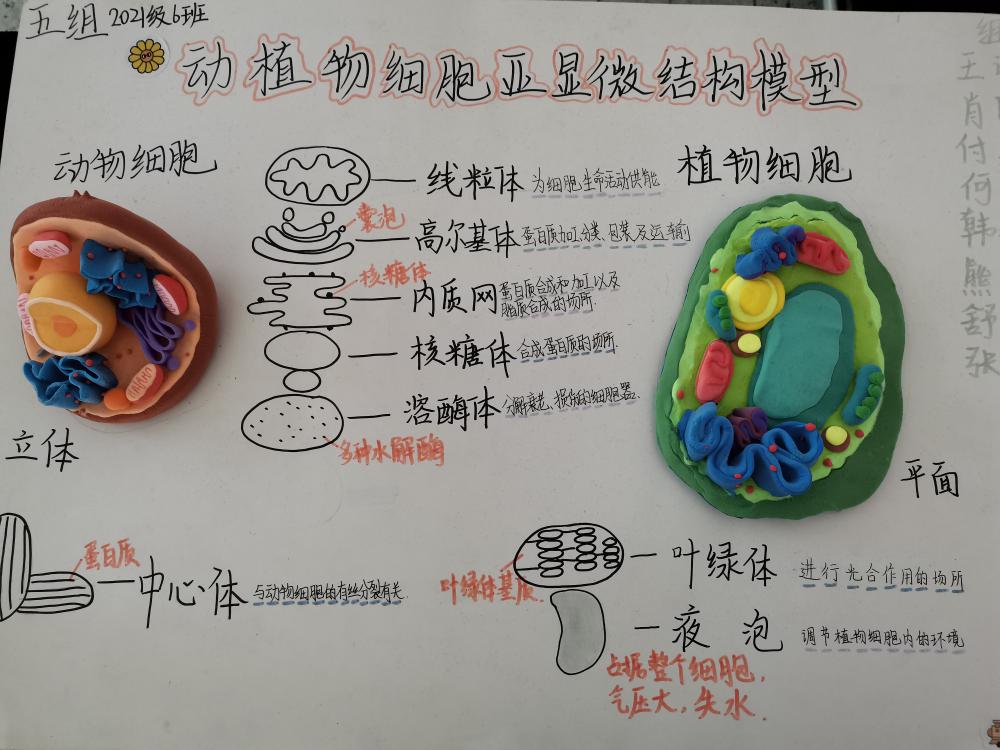 五组 2021级6班
动植物细胞亚显微结构模型
动物细胞
立体
线粒体 为细胞生命活动供能
囊泡
高尔基体 蛋白质加工、分类、包装及运输
核糖体
内质网 蛋白质合成和加工以及
脂质合成的场所
核糖体 合成蛋白质的场所
溶酶体 分解衰老、损伤的细胞器
多种水解酶
植物细胞
平面
蛋白质
中心体 与动物细胞的有丝分裂有关
叶绿体基质
叶绿体 进行光合作用的场所
液泡 调节植物细胞内的环境
占据整个细胞,
气压大,失水.
组
王
肖
付
何
韩
熊
舒
张